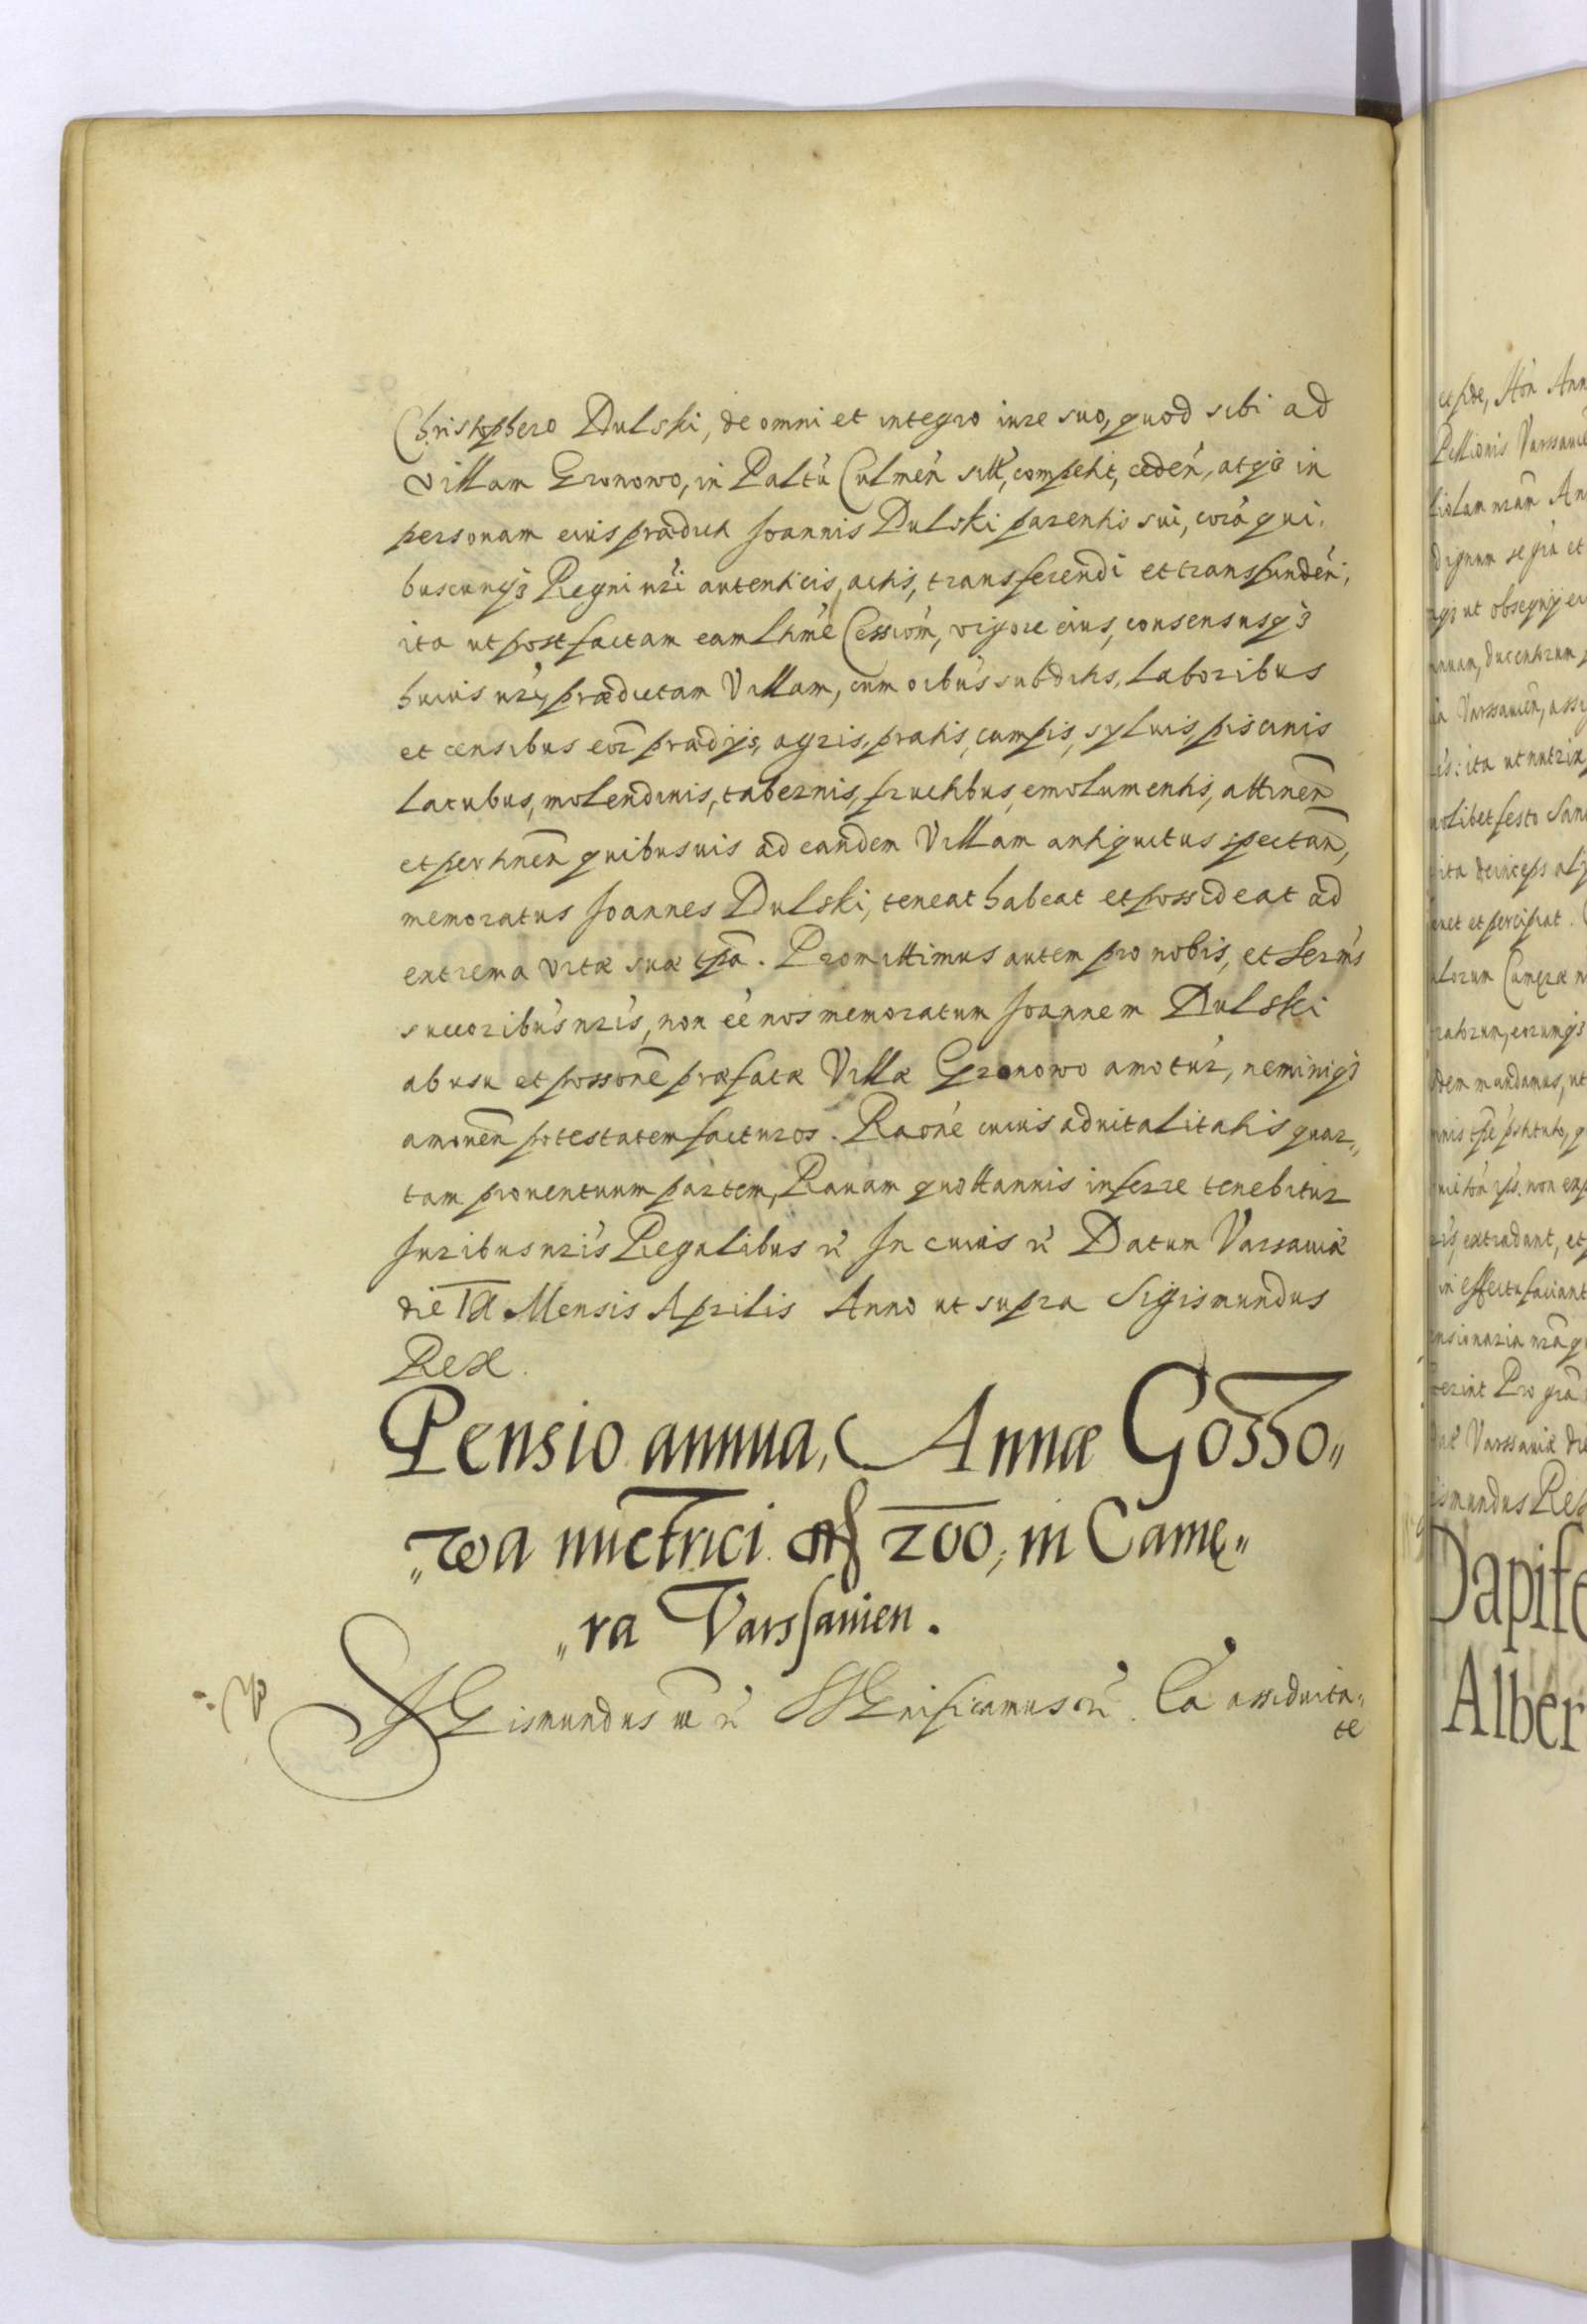 Christophero Dulski, de omni et integro iure suo, quod sibi ad
villam Gronowo, in Palťu Culmeń sitť, competit, cedeń, atq3 in
personam eius prædicti Joannis Dulski parentis sui, corā qui,
buscunq3 Regni nři autenticis, actis, transferendi et transfundeń,
ita ut post factam eam Lťime Cessiōm, vigore eius, consensusq3
huius nři, prædictam Villam, cum oībus subditis, laboribus
et censibus eor prædijs, agris, pratis, campis, syluis, piscinis
lacubus, molendinis, tabernis, fructibus, emolumentis, attineñ
et pertineñ quibusuis ad eandem Villam antiquitus spectañ,
memoratus Joannes Dulski, teneat habeat et possideat ad
extrema vitæ suæ tp̃a. Promittimus autem pro nobis, et Serm̃is
succoribus nřis, non eē nos memoratum Joannem Dulski
ab usu et possonē præfatæ Villæ Gronowo amotur, neminiq3
amoueñ potestatem facturos. Raonē cuius aduitalitatis quar„
tam prouentuum partem, Rauam quottannis inferre tenebitur
Juribus nřis Regalibus rc̃ In cuius rc̃ Datum Varsauiæ
die Mensis Aprilis Anno ut supra Sigismundus
Rex.
Pensio annua, Annæ Gosso„
„wa nuctrici fl 200, in Camę„
„ra Varssauien.
SIGismundus III rc̃ SIGnificamus rc̃. Ea assiduita„
te
et fide, Hōn Ann
Pellionis Varsauie
filolam nram An
dignum se grā et
ut obsequij eiu
ducentrum
Varssauień, assig
ita ut nutrix
festo San
ita deinceps
et percipiat.
Camęræ n
eorumq3
mandamus, ut
non exp
extradant, et
in effectu faciant
nrā
Pro grā
Varssauiæ die
Rex
Dapife
Alber